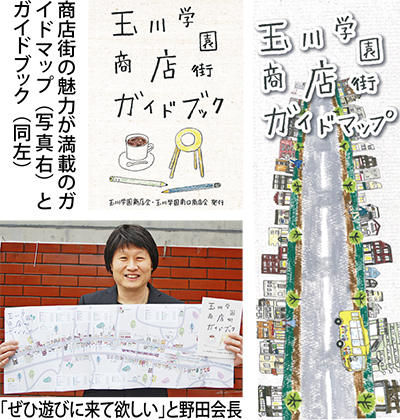 商店街の魅力が満載のガ
イドマップ（写真右）と
ガイドブック（同左）
玉川学園
商店街
ガイドブック
玉川学園商店会・玉川学園南口商店会 発行
玉川学園
商店街
ガイドマップ
玉川学園
商店街
ガイドブック
「ぜひ遊びに来て欲しい」と野田会長